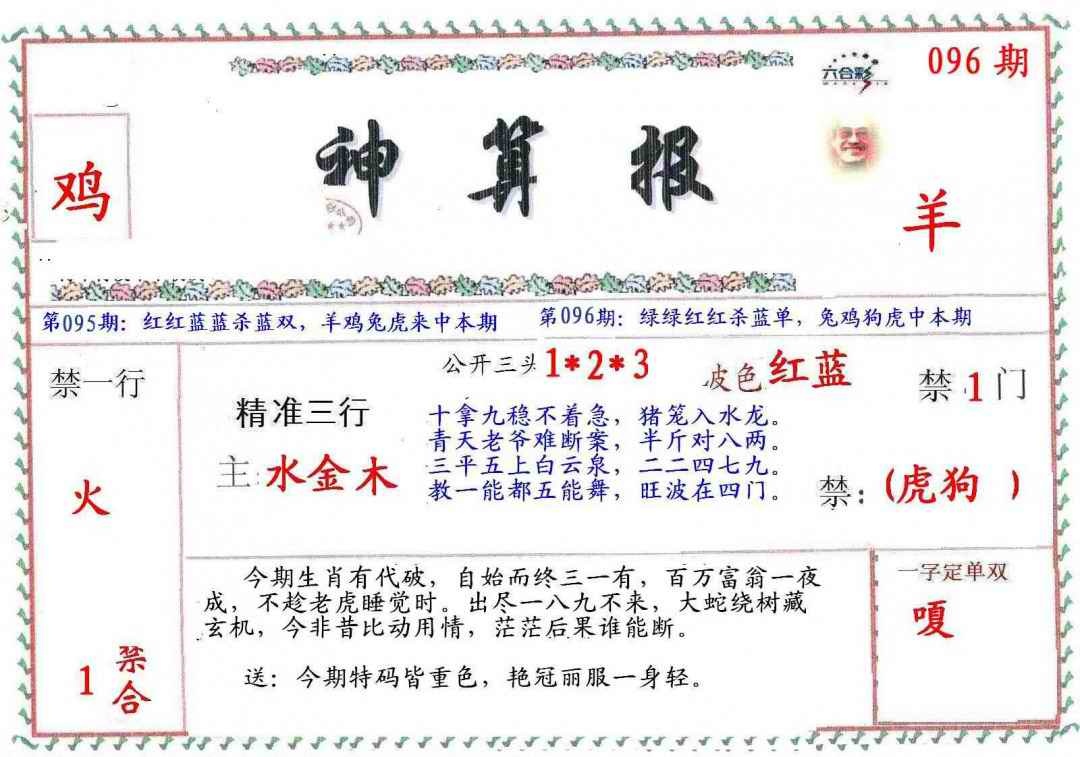 096 期
六合彩
鸡
神算报
羊
第095期：红红蓝蓝杀蓝双，羊鸡兔虎来中本期
第096期：绿绿红红杀蓝单，兔鸡狗虎中本期
禁一行
火
1 禁合
精准三行
主：水金木
公开三头 1*2*3
波色 红蓝
十拿九稳不着急，猪笼入水龙。
青天老爷难断案，半斤对八两。
三平五上白云泉，二二四七九。
教一能都五能舞，旺波在四门。
禁 1 门
禁：(虎狗 )
今期生肖有代破，自始而终三一有，百万富翁一夜
成，不趁老虎睡觉时。出尽一八九不来，大蛇绕树藏
玄机，今非昔比动用情，茫茫后果谁能断。
送：今期特码皆重色，艳冠丽服一身轻。
一字定单双
嘎